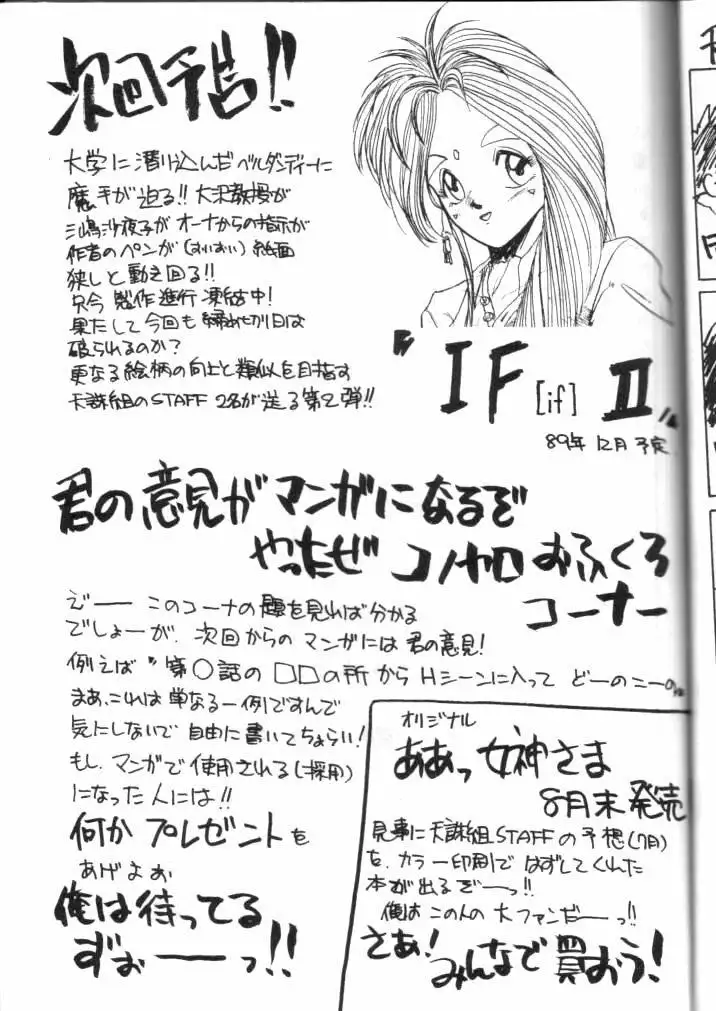 次回予告!!
大学に潜り込んだベルダンディーに
魔手が迫る!! 大沢教授が
三嶋沙夜子が オーナからの指示が
作者のペンが(すいすい)絵画
狭しと動き回る!!
只今 製作進行 凍結中!
果たして今回も締め切り日は
破られるのか?
更なる絵柄の向上と類似を目指す
天誅組のSTAFF 2名が送る第2弾!!
"IF [if] II"
89年 12月 予定
君の意見がマンガになるぞ
やったぜ コノヤロ おふくろ
コーナー
えーー このコーナの題を見れば分かる
でしょーが、次回からの マンガには 君の意見!
例えば "第〇話の □□の所から Hシーンに入って どーのこーの"
まあ、これは 単なる一例ですんで
気にしないで 自由に書いてちょらい!
もし、マンガで使用される(採用)
になった人には!!
何か プレゼントを
あげよお
俺は待ってる
ずぉーーっ!!
オリジナル
ああっ女神さま
8月末 発売
見事に天誅組STAFFの予想(7月)
を、カラー印刷で はずしてくれた
本が出るぞーっ!!
俺は この人の 大ファンだーーっ!!
さあ!
みんなで 買おう!